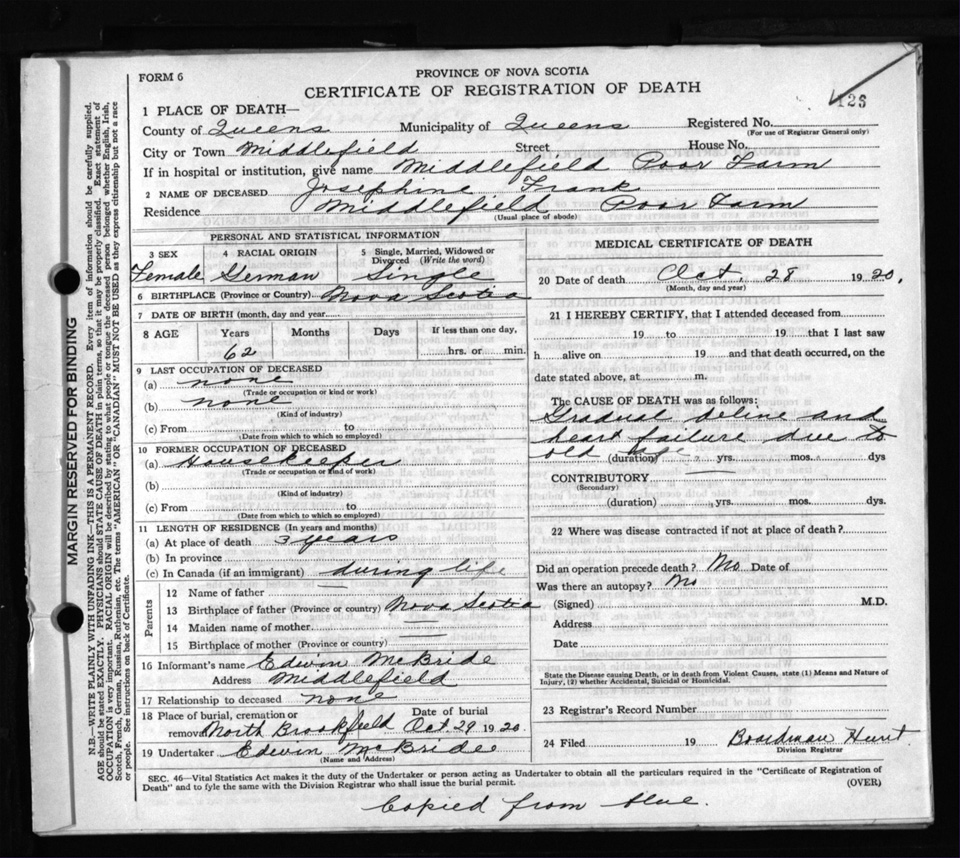 FORM 6
PROVINCE OF NOVA SCOTIA
CERTIFICATE OF REGISTRATION OF DEATH
123
1 PLACE OF DEATH—
County of Queens Municipality of Queens Registered No.
(For use of Registrar General only)
City or Town Middlefield Street House No.
If in hospital or institution, give name Middlefield Poor Farm
2 NAME OF DECEASED Josephine Frank
Residence Middlefield Poor Farm
(Usual place of abode)
PERSONAL AND STATISTICAL INFORMATION
3 SEX 4 RACIAL ORIGIN 5 Single, Married, Widowed or Divorced (Write the word)
Female German Single
6 BIRTHPLACE (Province or Country) Nova Scotia
7 DATE OF BIRTH (month, day and year)
8 AGE Years Months Days If less than one day,
62 hrs. or min.
9 LAST OCCUPATION OF DECEASED
(a) none
(Trade or occupation or kind of work)
(b) none
(Kind of industry)
(c) From to
(Date from which to which so employed)
10 FORMER OCCUPATION OF DECEASED
(a) Housekeeper
(Trade or occupation or kind of work)
(b)
(Kind of industry)
(c) From to
(Date from which to which so employed)
11 LENGTH OF RESIDENCE (In years and months)
(a) At place of death 3 years
(b) In province
(c) In Canada (if an immigrant) during life
Parents
12 Name of father
13 Birthplace of father (Province or country) Nova Scotia
14 Maiden name of mother
15 Birthplace of mother (Province or country)
16 Informant's name Edwin McBride
Address Middlefield
17 Relationship to deceased none
18 Place of burial, cremation or removal North Brookfield Date of burial Oct 29 1920
19 Undertaker Edwin McBride
(Name and Address)
MEDICAL CERTIFICATE OF DEATH
20 Date of death Oct. 28 1920.
(Month, day and year)
21 I HEREBY CERTIFY, that I attended deceased from
19 to 19 that I last saw
h alive on 19 and that death occurred, on the
date stated above, at m.
The CAUSE OF DEATH was as follows:
Gradual deline and
heart failure due to
old age
(duration) yrs. mos. dys
CONTRIBUTORY
(Secondary)
(duration) yrs. mos. dys.
22 Where was disease contracted if not at place of death?
Did an operation precede death? No Date of
Was there an autopsy? No
(Signed) M.D.
Address
Date
State the Disease causing Death, or in death from Violent Causes, state (1) Means and Nature of
Injury, (2) whether Accidental, Suicidal or Homicidal.
23 Registrar's Record Number
24 Filed 19 Boardman Hunt
Division Registrar
SEC. 46—Vital Statistics Act makes it the duty of the Undertaker or person acting as Undertaker to obtain all the particulars required in the "Certificate of Registration of
Death" and to fyle the same with the Division Registrar who shall issue the burial permit. (OVER)
Copied from blue.
MARGIN RESERVED FOR BINDING
N.B.—WRITE PLAINLY WITH UNFADING INK—THIS IS A PERMANENT RECORD. Every item of information should be carefully supplied.
AGE should be stated EXACTLY. PHYSICIANS should STATE CAUSE OF DEATH in plain terms, so that it may be properly classified. Exact statement of
OCCUPATION is very important. RACIAL ORIGIN will be described by stating to what people or tongue the deceased person belonged whether English, Irish,
Scotch, French, German, Russian, Ruthenian, etc. The terms "AMERICAN" or "CANADIAN" MUST NOT BE USED as they express citizenship but not a race
or people. See instructions on back of Certificate.